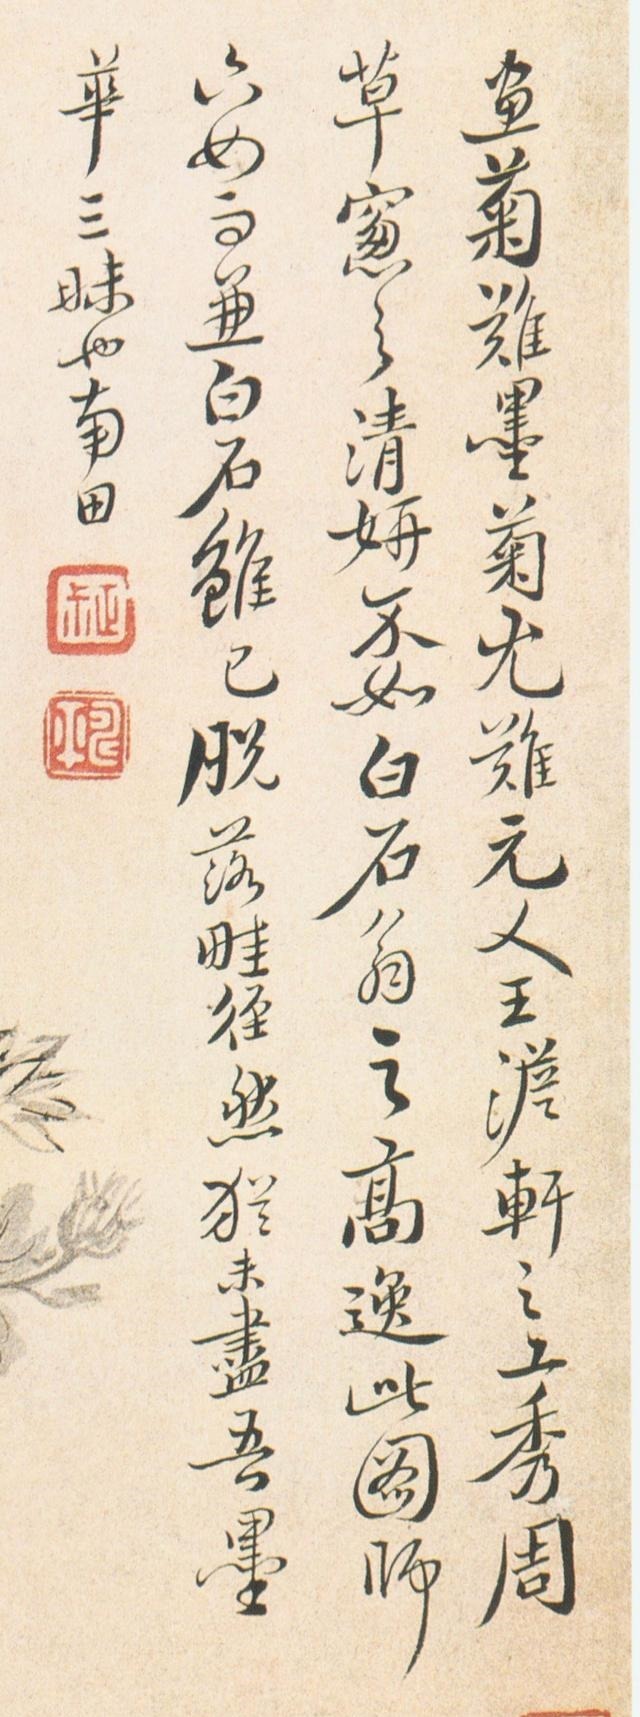 画菊難墨菊尤難元人王澹軒之工秀周
草窓之清妍不如白石翁之高逸此图師
六如而兼白石雖已脱落畦徑然猶未盡吾墨
華三昧也南田